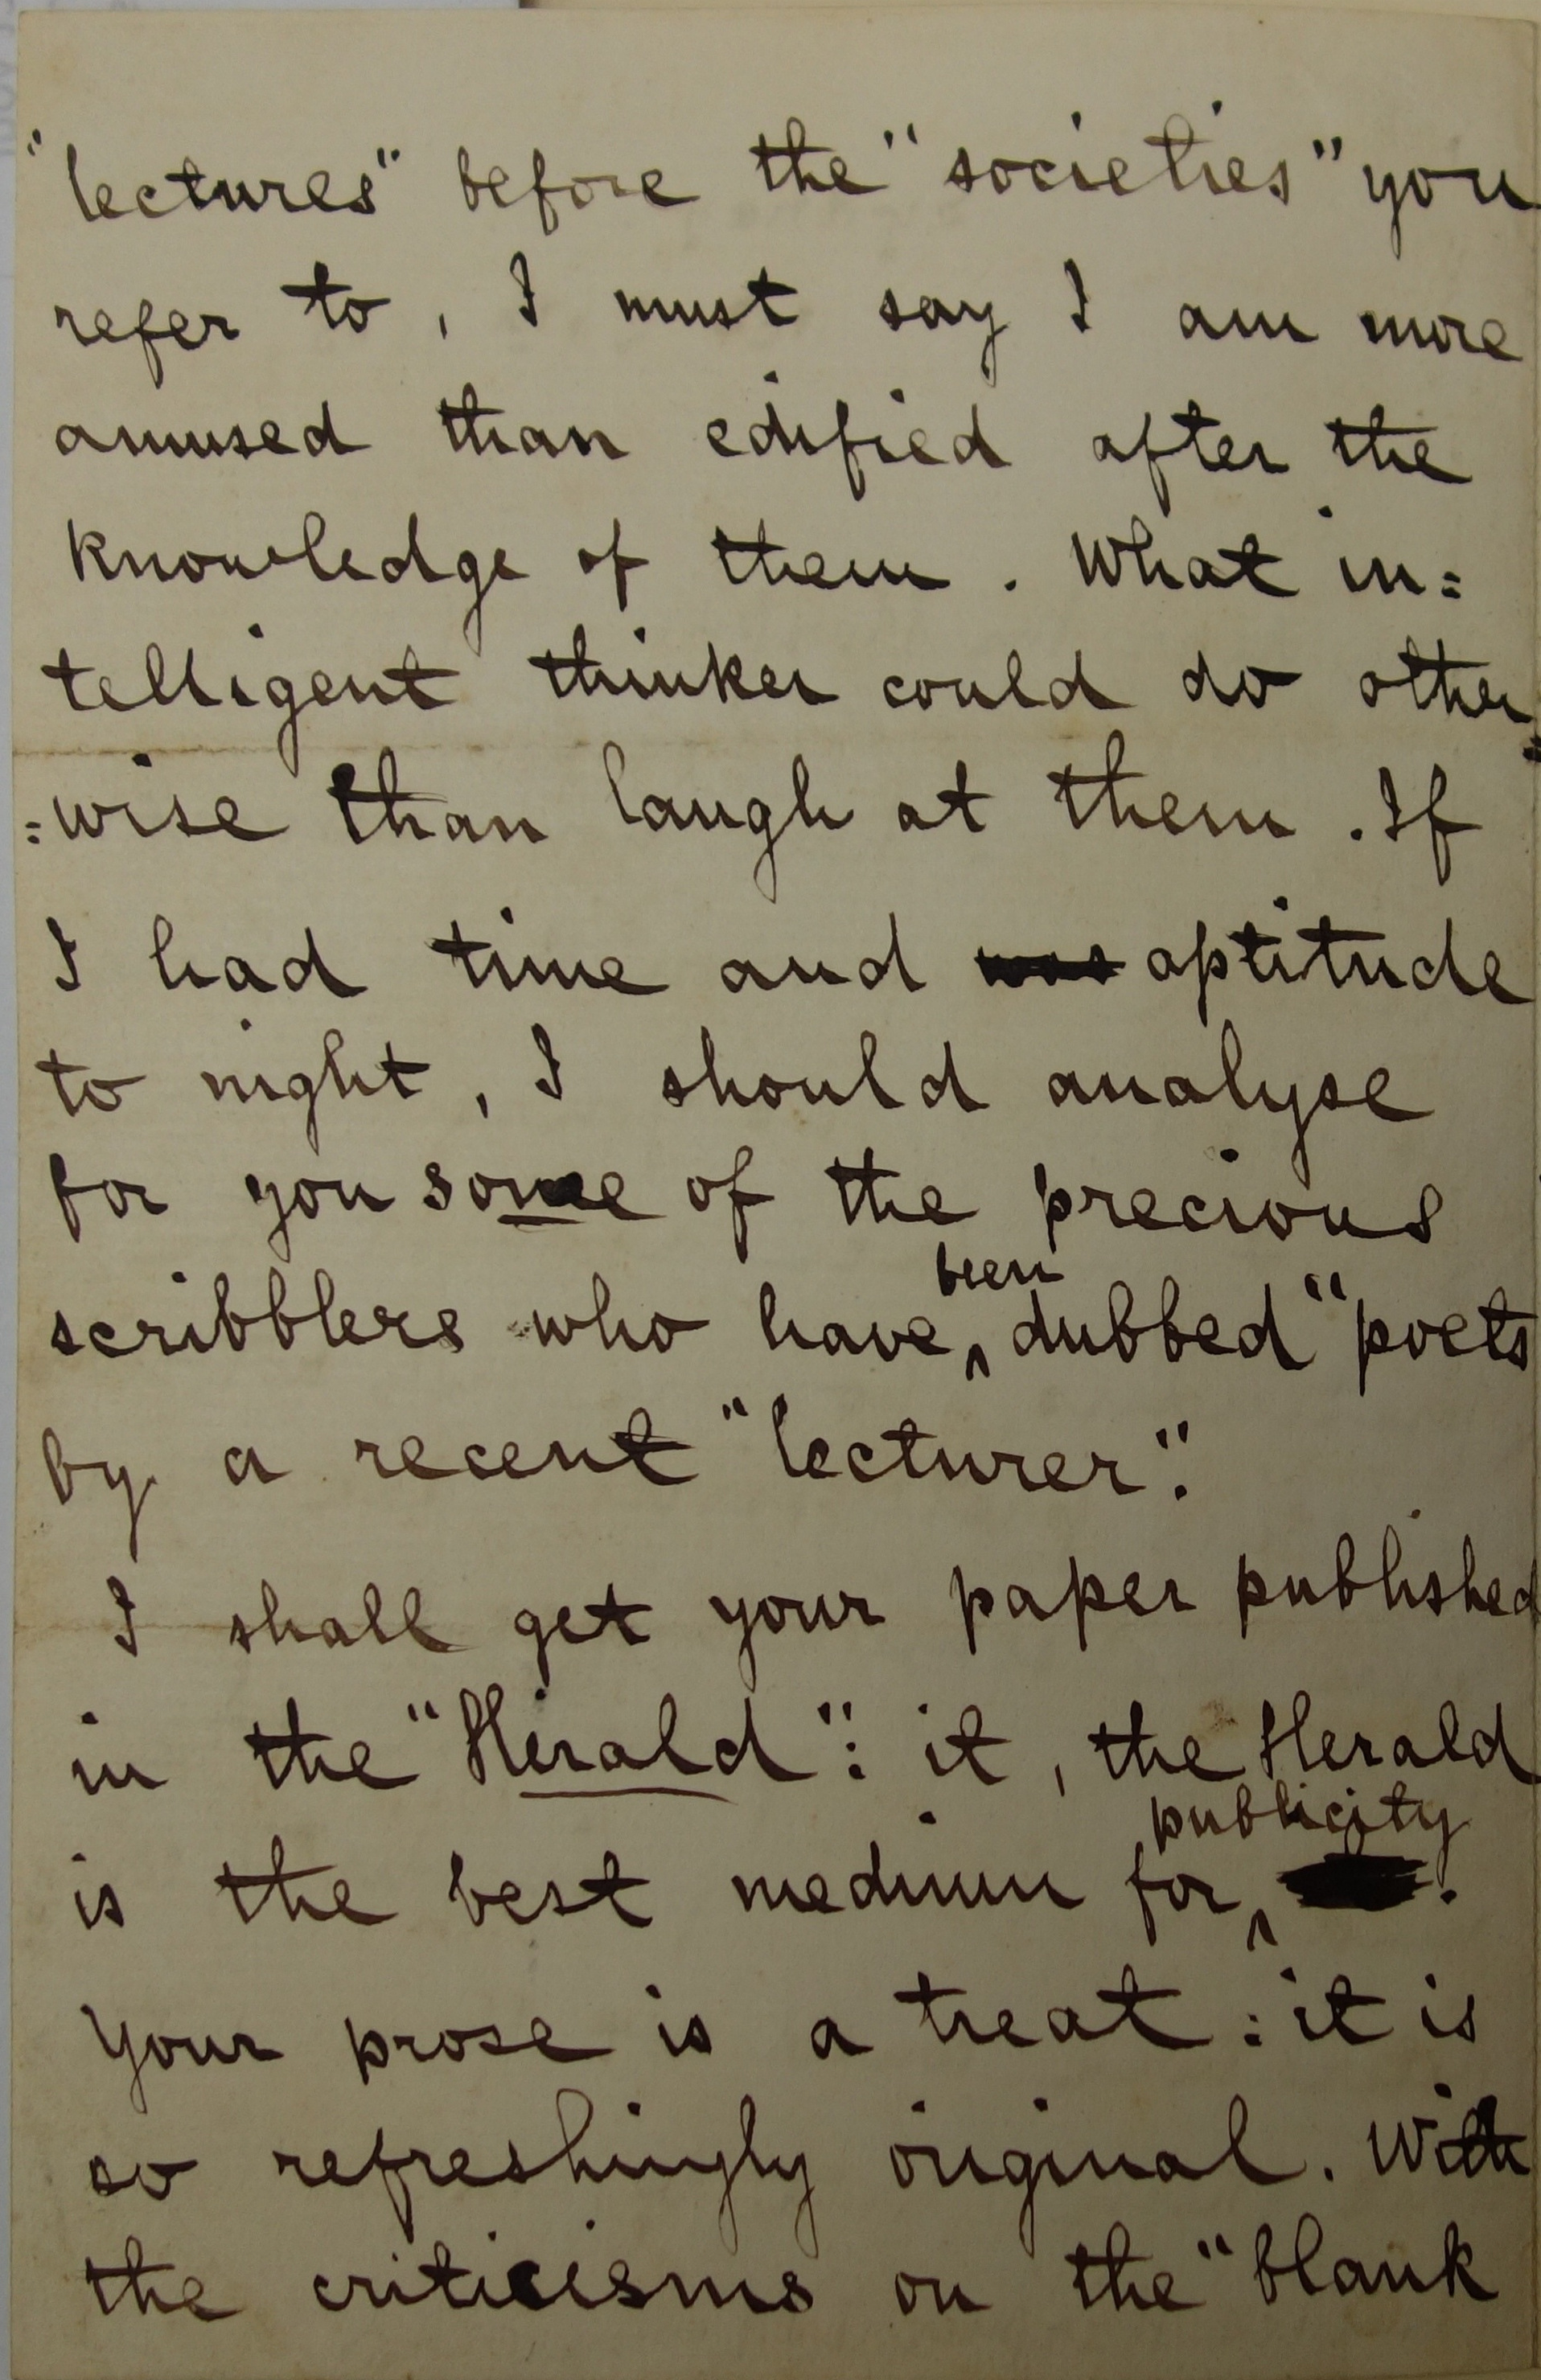 "lectures" before the "societies" you
refer to, I must say I am more
amused than edified after the
knowledge of them. What in=
telligent thinker could do other=
=wise than laugh at them. If
I had time and was aptitude
to night, I should analyse
for you some of the precious
scribblers who have been dubbed "poets
by a recent "lecturer".
I shall get your paper published
in the "Herald": it, the Herald
is the best medium for publicity.
Your prose is a treat: it is
so refreshingly original. With
the criticisms on the "blank